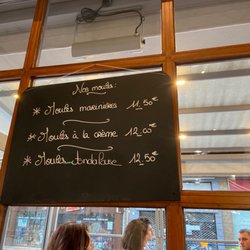 Nos moules:
* Moules marinières 11.50€
* Moules à la crème 12.00€
* Moules 12.50€